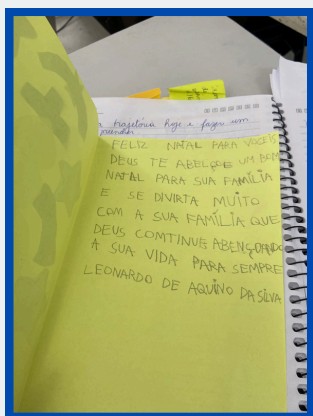 a trajetória hoje e fazer um
FELIZ NATAL PARA VOCEIS
DEUS TE ABELÇOE UM BOM
NATAL PARA SUA FAMÍLIA
E SE DIVIRTA MUITO
COM A SUA FAMÍLIA QUE
DEUS COMTINUE ABENÇOANDO
A SUA VIDA PARA SEMPRE
LEONARDO DE AQUINO DA SILVA